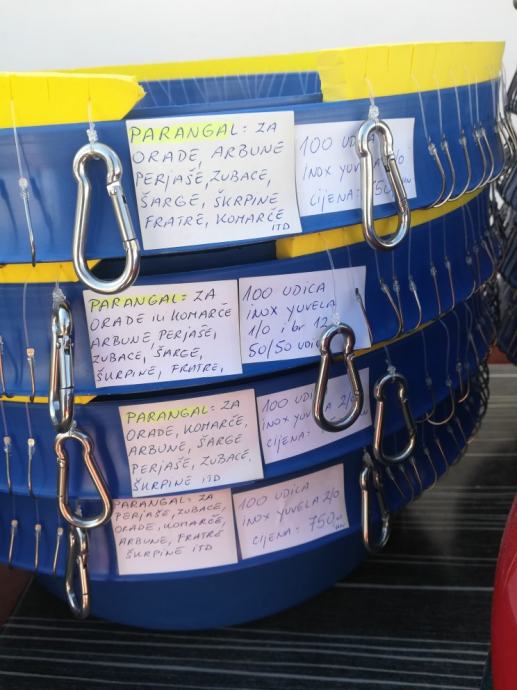 PARANGAL: ZA
ORADE, ARBUNE
PERJAŠE, ZUBACE,
ŠARGE, ŠKRPINE
FRATRE, KOMARČE
ITD
100 UDICA
INOX YUVELA 2/0
CIJENA: 750
PARANGAL: ZA
ORADE ILI KOMARČE
ARBUNE, PERJAŠE,
ZUBACE, ŠARGE,
ŠKRPINE, FRATRE,
100 UDICA
INOX YUVELA
1/0 i br 12
50/50 UDIC
PARANGAL: ZA
ORADE, KOMARČE,
ARBUNE, ŠARGE
PERJAŠE, ZUBACE,
ŠKRPINE ITD
100 UDICA
INOX YUVELA 2/0
CIJENA:
PARANGAL: ZA
PERJAŠE, ZUBACE,
ORADE, KOMARČE,
ARBUNE, FRATRE
ŠKRPINE ITD
100 UDICA
INOX YUVELA 2/0
CIJENA: 750